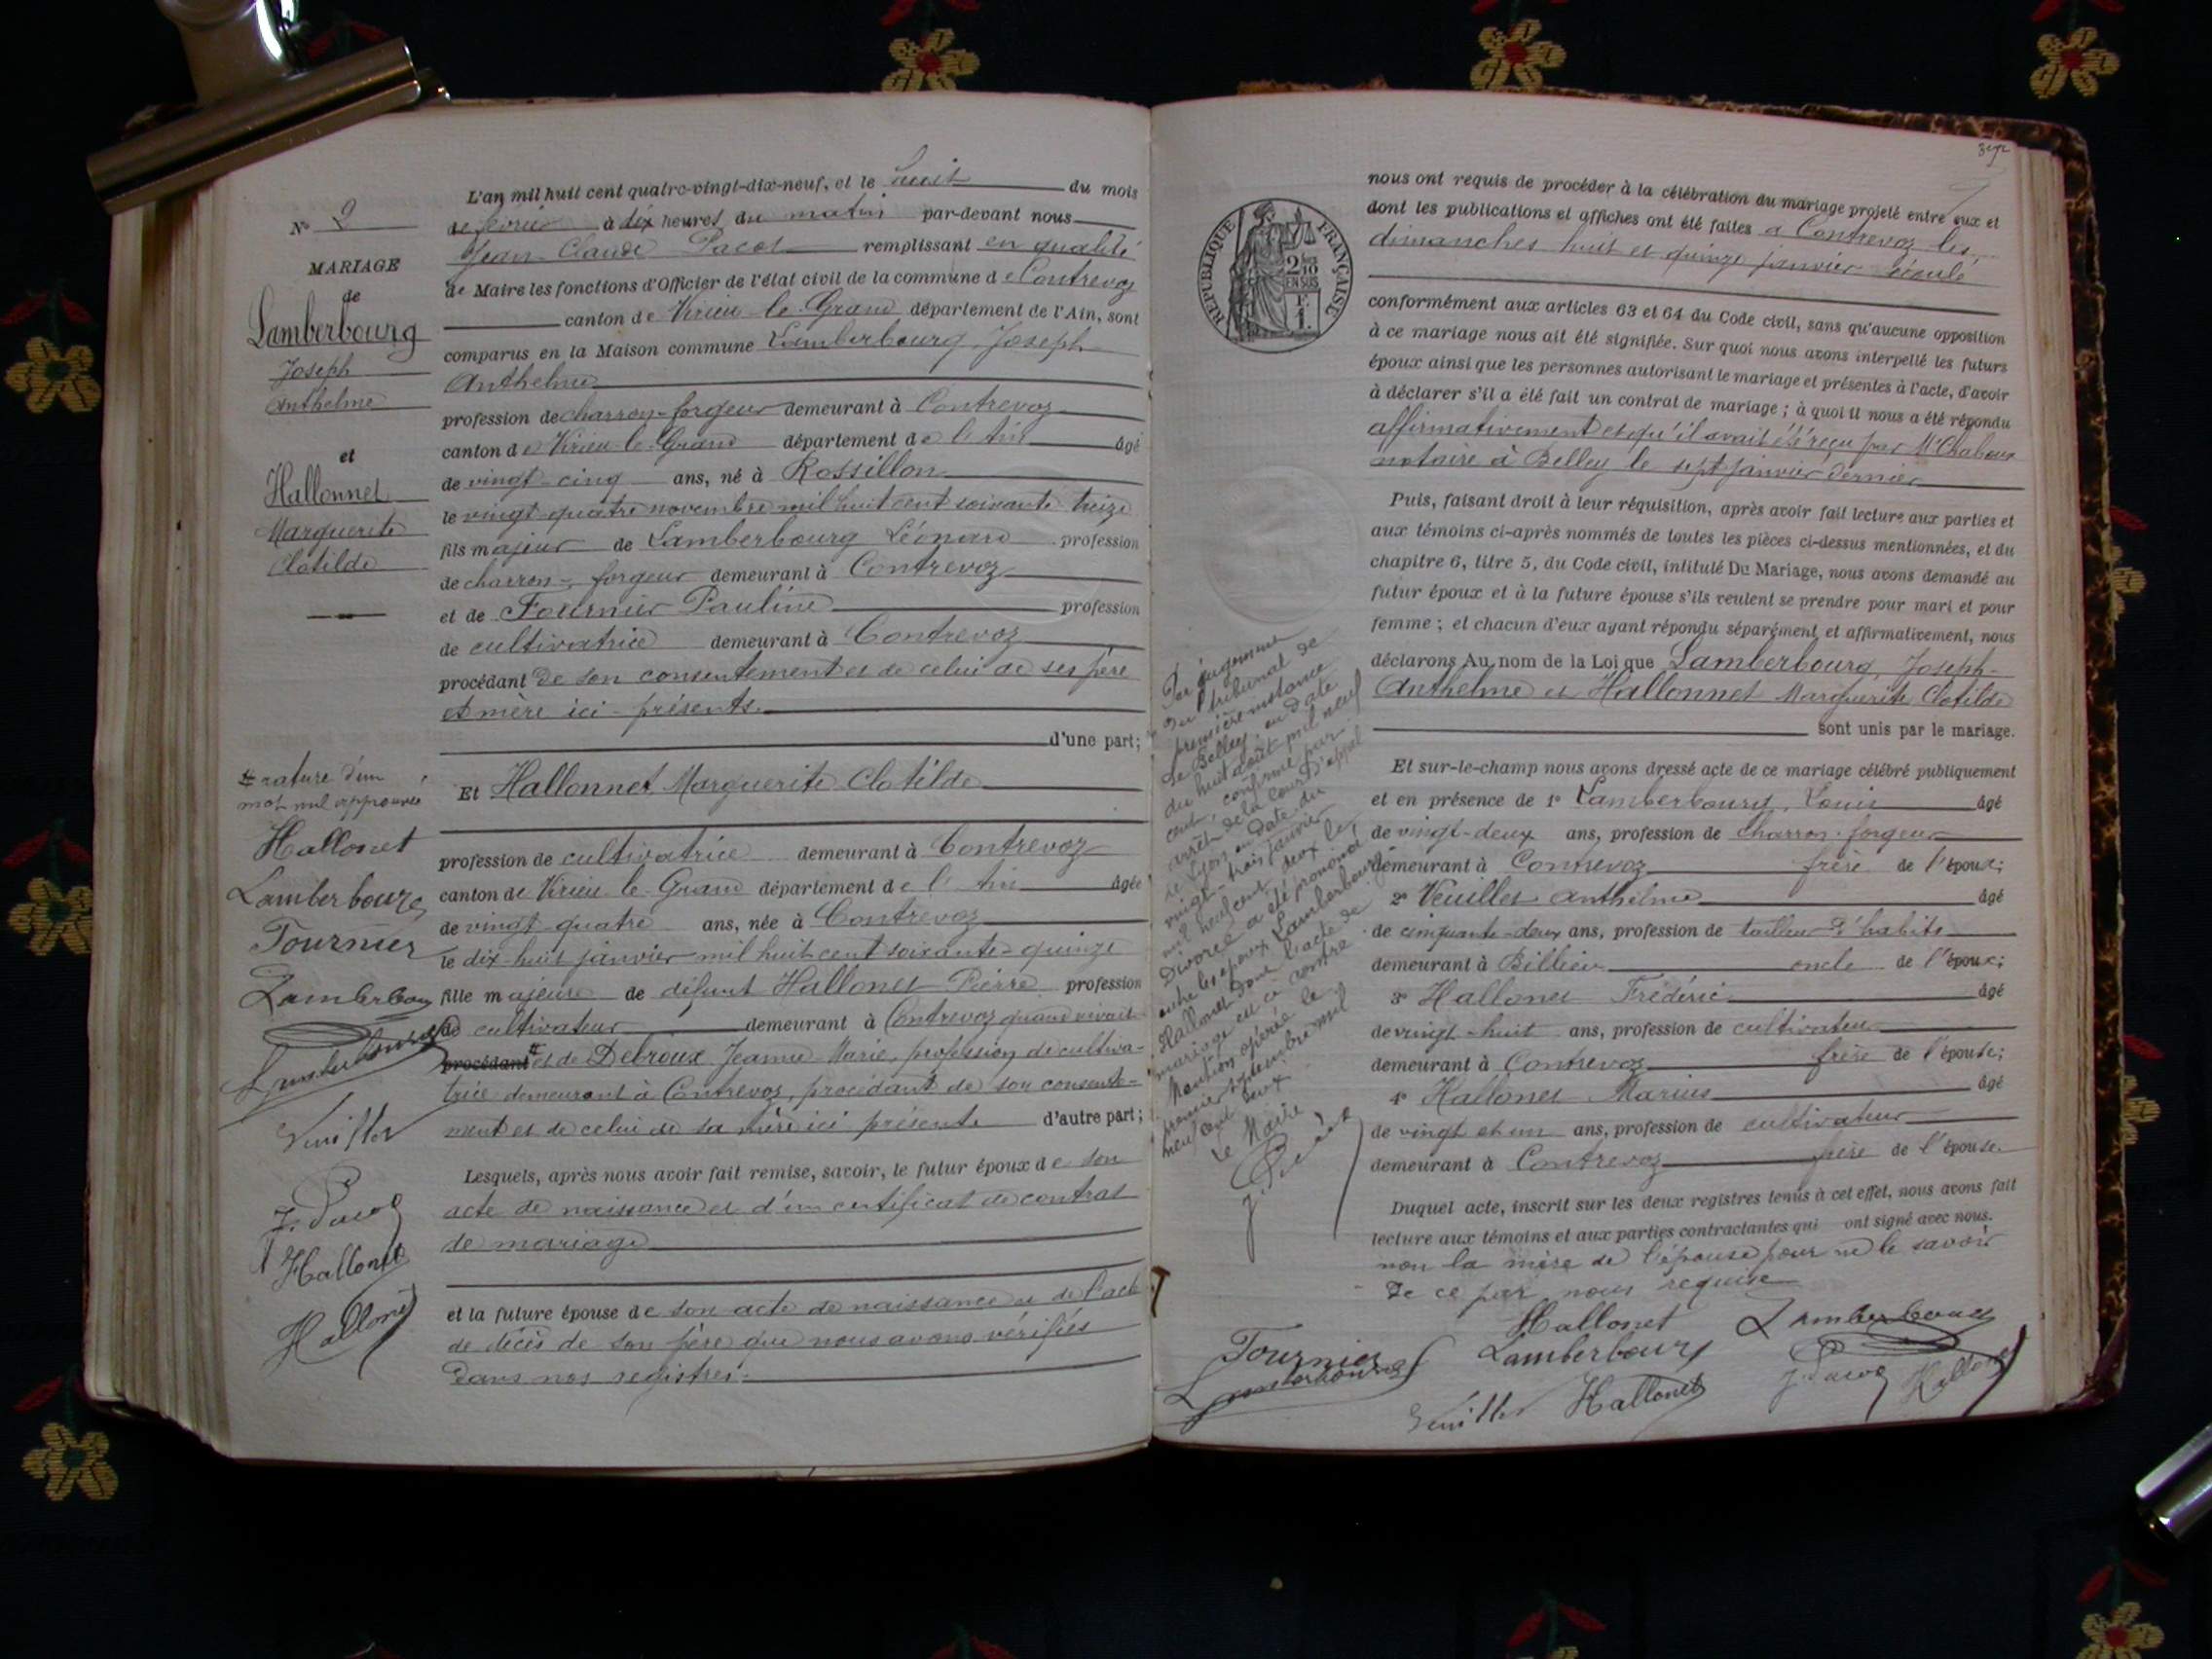 N° 2
MARIAGE
de
Lamberbourg
Joseph
Anthelme
et
Hallonnet
Marguerite
Clotilde
L'an mil huit cent quatre-vingt-dix-neuf, et le huit du mois
de février à dix heures du matin par-devant nous
Jean-Claude Pacot remplissant en qualité
de Maire les fonctions d'Officier de l'état civil de la commune de Contrevoz
canton de Virieu-le-Grand département de l'Ain, sont
comparus en la Maison commune Lamberbourg, Joseph
Anthelme
profession de charron-forgeur demeurant à Contrevoz
canton de Virieu-le-Grand département de l'Ain âgé
de vingt-cinq ans, né à Rossillon
le vingt-quatre novembre mil huit cent soixante-treize
fils majeur de Lamberbourg Léonard profession
de charron-forgeur demeurant à Contrevoz
et de Fournier Pauline profession
de cultivatrice demeurant à Contrevoz
procédant de son consentement et de celui de ses père
et mère ici-présents.
d'une part;
Et Hallonnet Marguerite Clotilde
profession de cultivatrice demeurant à Contrevoz
canton de Virieu-le-Grand département de l'Ain âgée
de vingt-quatre ans, née à Contrevoz
le dix-huit janvier mil huit cent soixante-quinze
fille majeure de défunt Hallonet Pierre profession
de cultivateur demeurant à Contrevoz quand vivait
procédant et de Debroux Jeanne Marie, profession de cultiva-
trice demeurant à Contrevoz, procédant de son consente-
ment et de celui de sa mère ici présente d'autre part;
Lesquels, après nous avoir fait remise, savoir, le futur époux de son
acte de naissance et d'un certificat de contrat
de mariage
et la future épouse de son acte de naissance et de l'acte
de décès de son père que nous avons vérifiés
dans nos registres.
rature d'un
mot nul approuvée
Hallonet
Lamberbourg
Fournier
Lamberbourg
Lamberbourg
Veuillet
J. Pacot
Hallonet
Hallonet
RÉPUBLIQUE FRANÇAISE
2/10
EN SUS
1 F.
nous ont requis de procéder à la célébration du mariage projeté entre eux et
dont les publications et affiches ont été faites à Contrevoz les
dimanches huit et quinze janvier écoulé
conformément aux articles 63 et 64 du Code civil, sans qu'aucune opposition
à ce mariage nous ait été signifiée. Sur quoi nous avons interpellé les futurs
époux ainsi que les personnes autorisant le mariage et présentes à l'acte, d'avoir
à déclarer s'il a été fait un contrat de mariage; à quoi il nous a été répondu
affirmativement et qu'il avait été reçu par Me
notaire à Belley le sept janvier dernier
Puis, faisant droit à leur réquisition, après avoir fait lecture aux parties et
aux témoins ci-après nommés de toutes les pièces ci-dessus mentionnées, et du
chapitre 6, titre 5, du Code civil, intitulé Du Mariage, nous avons demandé au
futur époux et à la future épouse s'ils veulent se prendre pour mari et pour
femme; et chacun d'eux ayant répondu séparément et affirmativement, nous
déclarons Au nom de la Loi que Lamberbourg, Joseph-
Anthelme et Hallonnet Marguerite Clotilde
sont unis par le mariage.
Et sur-le-champ nous avons dressé acte de ce mariage célébré publiquement
et en présence de 1° Lamberbourg, Louis âgé
de vingt-deux ans, profession de charron-forgeur
demeurant à Contrevoz frère de l'époux;
2° Veuillet Anthelme âgé
de cinquante-deux ans, profession de tailleur d'habits
demeurant à Billieu oncle de l'époux;
3° Hallonet Frédéric âgé
de vingt-huit ans, profession de cultivateur
demeurant à Contrevoz frère de l'épouse;
4° Hallonet Marius âgé
de vingt et un ans, profession de cultivateur
demeurant à Contrevoz frère de l'épouse.
Duquel acte, inscrit sur les deux registres tenus à cet effet, nous avons fait
lecture aux témoins et aux parties contractantes qui ont signé avec nous.
non la mère de l'épouse pour ne le savoir
de ce par nous requise
Hallonet Lamberbourg
Fournier Lamberbourg
Lamberbourg J. Pacot Hallonet
Veuillet Hallonet
Par jugement
du tribunal de
première instance
de Belley, en date
du huit août mil neuf
cent, confirmé par
arrêt de la Cour d'appel
de Lyon en date du
vingt-trois janvier
mil neuf cent deux le
Divorce a été prononcé
entre les époux Lamberbourg
Hallonet dont l'acte de
mariage est ci contre
Mention opérée le
premier septembre mil
neuf cent deux
Le Maire
J. Pacot